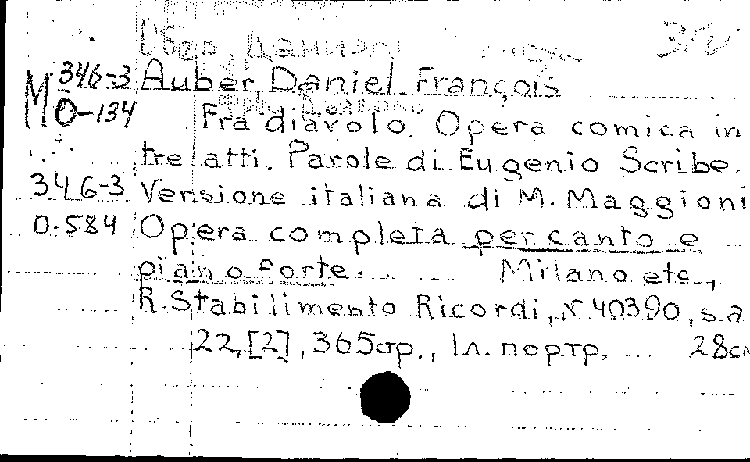 Обер, Даниэль
346-3 Auber Daniel François
М О-134 Fra diavolo. Opera comica in
tre atti. Parole di Eugenio Scribe.
346-3 Versione italiana di M. Maggioni
О-584 Opera completa per canto e
pianoforte. Milano etc.,
R. Stabilimento Ricordi, N. 40390, s.a
22, [2], 365 стр., 1 л. портр. 28 см